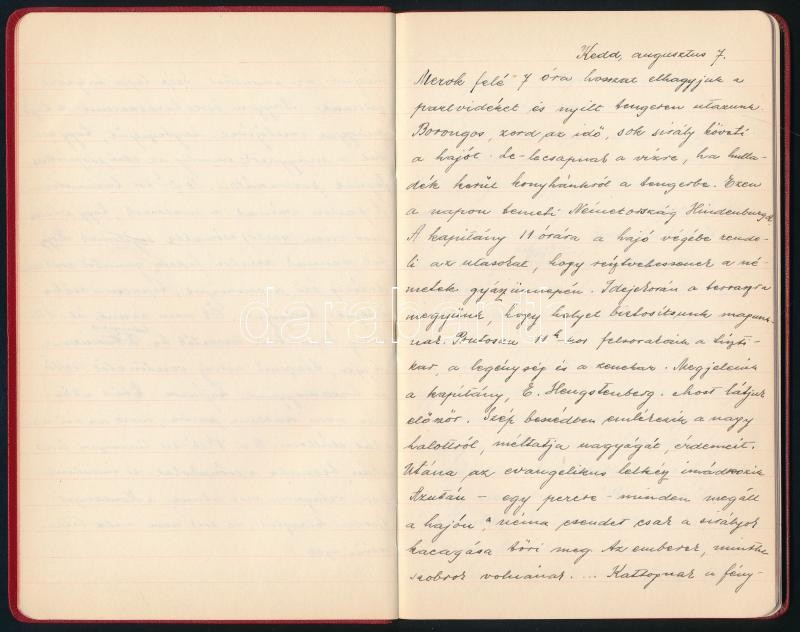 Kedd, augusztus 7.
Merok felé 7 óra hosszat elhagyjuk a
partvidéket és nyílt tengeren utazunk
Borongos, zord az idő, sok sirály követi
a hajót. le-lecsapnak a vízre, ha hulla-
dék kerül konyhánkról a tengerbe. Ezen
a napon temeti Németország Hindenburgot.
A kapitány 11 órára a hajó végébe rende-
li az utasokat, hogy résztvehessenek a né-
metek gyászünnepén. Idejekorán a terraszra
megyünk, hogy helyet biztosítsunk magunk-
nak. Pontosan 11h-kor felsorakozik a tiszti-
kar, a legénység és a zenekar. Megjelenik
a kapitány, E. Hengstenberg. Most látjuk
először. Szép beszédben emlékezik a nagy
halottról, méltatja nagyságát, érdemeit.
Utána az evangelikus lelkész imádkozik
Azután - egy percre - minden megáll
a hajón, néma csendet csak a sirályok
kacagása töri meg Az emberek, mintha
szobrok volnának. ... Kattognak a fény-
darabanth.com